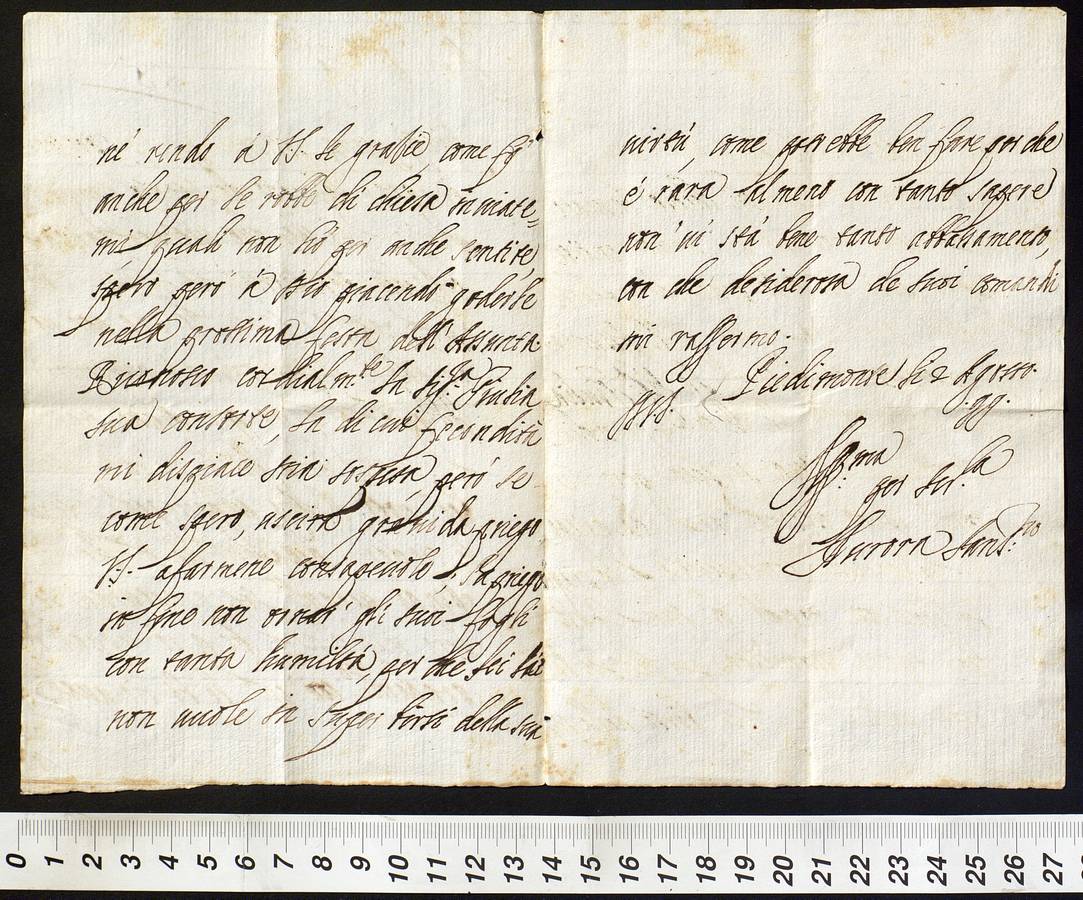 né rendo à V.S. le grazie, come fò
anche per le robbe di chiesa inviate=
mi quali non hò per anche sentite
spero però à Dio piacendo goderle
nella prossima festa dell'Assunta.
Riverisco cordialm.te la Sig.ra Giulia
sua consorte, la di cui fecondità
mi dispiace stia sospesa, però se
come spero, uscirà gravida priego
V.S. a farmene consapevole, la priego
in fine non ornar gli suoi fogli
con tanta humiltà, per che lei
non vuole in super tirsi della sua
virtù, come potrebbe ben fare per che
è rara almeno con tanto sapere
non vi stà bene tanto abbassamento,
con che desiderosa de suoi comandi
mi raffermo.
Piedimonte li 2 Agosto
Aff.ma
per ser.la
Aurora San
0 1 2 3 4 5 6 7 8 9 10 11 12 13 14 15 16 17 18 19 20 21 22 23 24 25 26 27